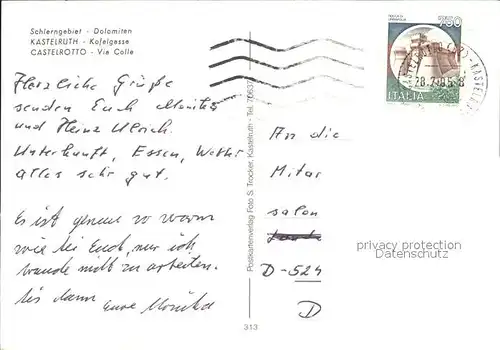 Schlerngebiet - Dolomiten
KASTELRUTH - Kofelgasse
CASTELROTTO - Vie Colle
Herzliche Grüße
senden Euch Monika
und Heinz Ulrich.
Unterkunft, Essen, Wetter
alles sehr gut.
Es ist genau so warm
wie bei Euch, nur ich
brauche nicht zu arbeiten.
bis dann
Eure Monika
Postkartenverlag Foto S. Trocker, Kastelruth - Tel.
313
750
ITALIA
KASTELR
An die
Mitar
salon
D-524
D
privacy protection
Datenschutz